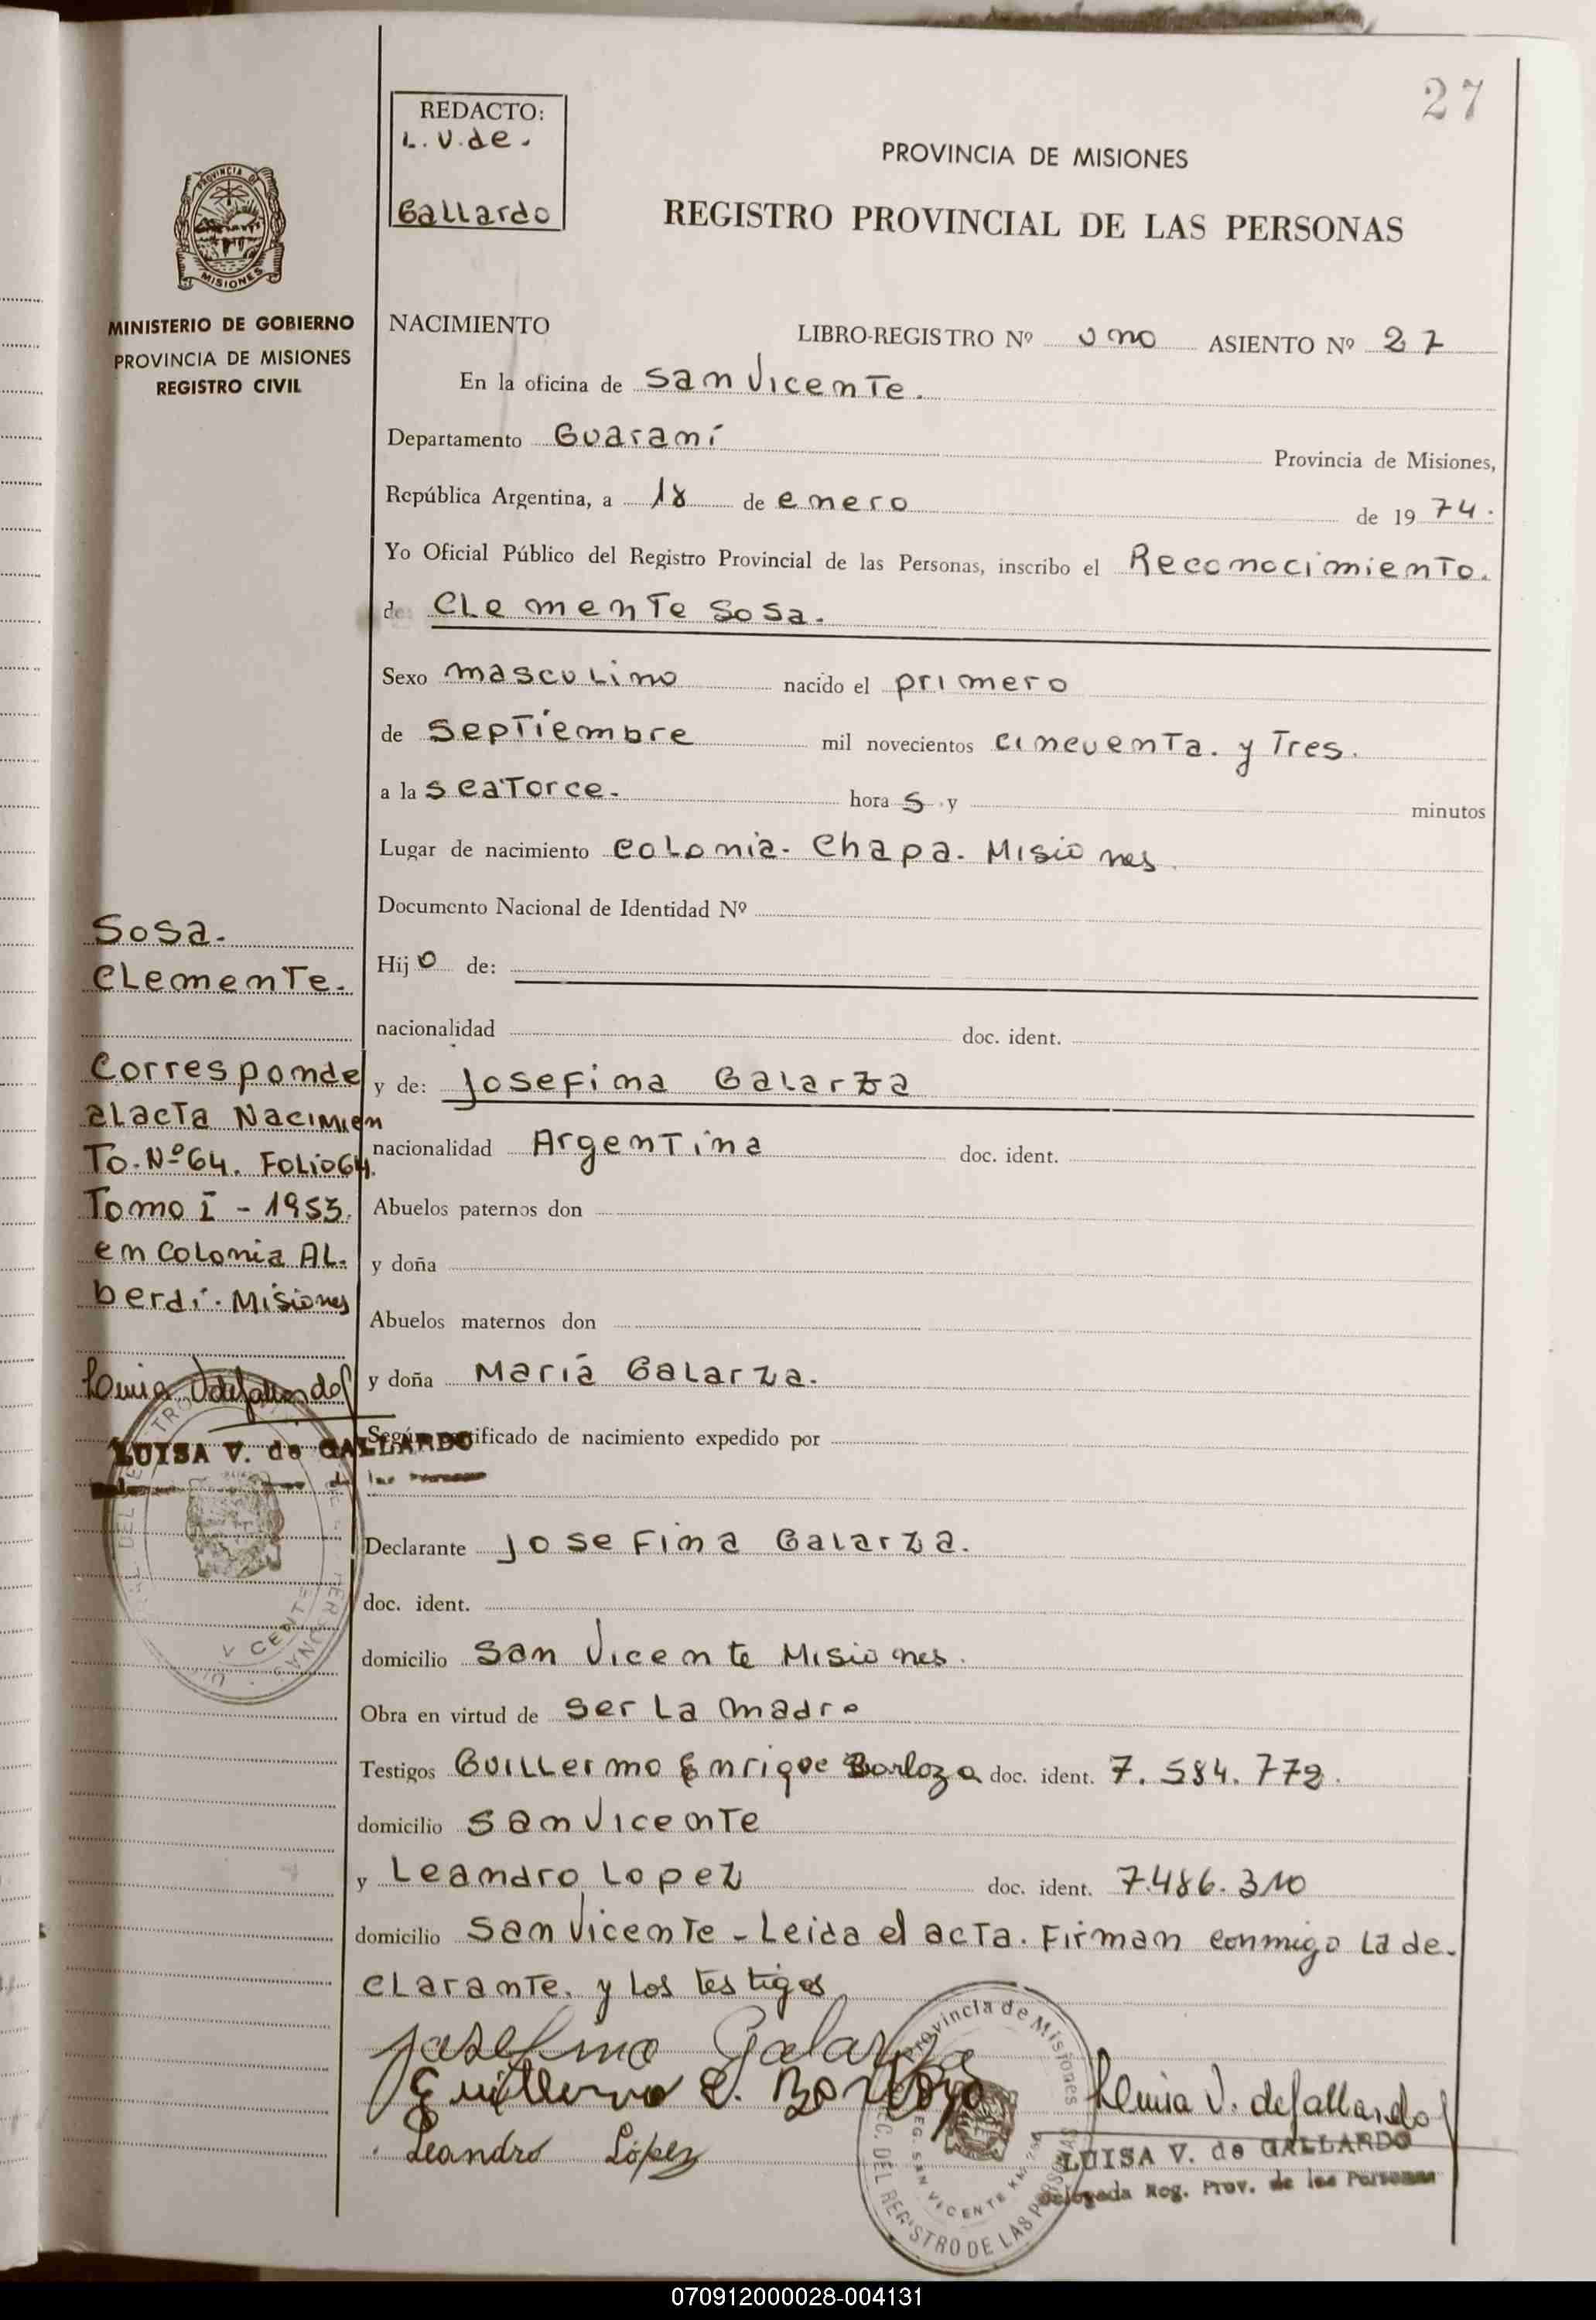 27
REDACTO:
L. V. de.
Gallardo
PROVINCIA DE MISIONES
REGISTRO PROVINCIAL DE LAS PERSONAS
PROVINCIA DE
MISIONES
MINISTERIO DE GOBIERNO
PROVINCIA DE MISIONES
REGISTRO CIVIL
NACIMIENTO LIBRO-REGISTRO Nº uno ASIENTO Nº 27
En la oficina de San Vicente.
Departamento Guaraní Provincia de Misiones,
República Argentina, a 18 de enero de 19 74.
Yo Oficial Público del Registro Provincial de las Personas, inscribo el Reconocimiento.
de: Clemente Sosa.
Sexo masculino nacido el primero
de Septiembre mil novecientos cincuenta. y Tres.
a la s catorce. hora s y minutos
Lugar de nacimiento Colonia. Chapa. Misiones.
Documento Nacional de Identidad Nº
Hij o de:
nacionalidad doc. ident.
y de: Josefina Galarza
nacionalidad Argentina doc. ident.
Abuelos paternos don
y doña
Abuelos maternos don
y doña María Galarza.
Según certificado de nacimiento expedido por
Declarante Josefina Galarza.
doc. ident.
domicilio San Vicente Misiones.
Obra en virtud de ser la madre
Testigos Guillermo Enrique Borloza doc. ident. 7.584.772.
domicilio San Vicente
y Leandro Lopez doc. ident. 7.486.310
domicilio San Vicente - Leida el acta. Firman conmigo la de-
clarante. y los testigos
Josefina Galarza
Guillermo E. Borloza
Leandro López
Luisa V. de Gallardo
LUISA V. de GALLARDO
Delegada Reg. Prov. de las Personas
Provincia de Misiones
DEL REGISTRO DE LAS PERSONAS
REG. SAN VICENTE
Sosa.
Clemente.
Corresponde
al acta Nacimien
to. Nº 64. Folio 64.
Tomo I - 1953.
en Colonia Al-
berdi. Misiones
Luisa V de Gallardo
LUISA V. de GALLARDO
070912000028-004131